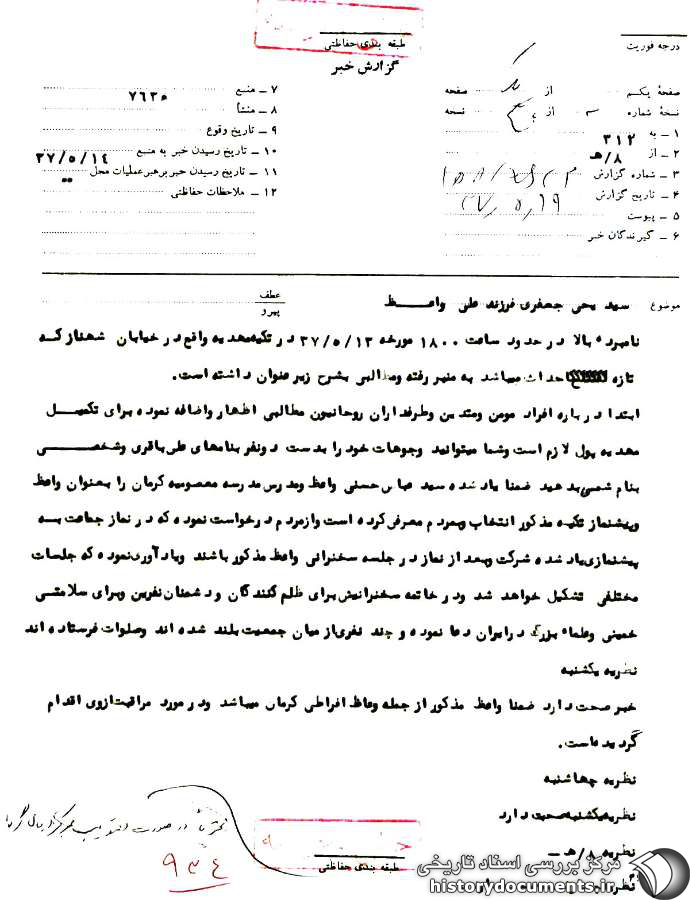 طبقه بندی حفاظتی
گزارش خبر
درجه فوریت
صفحهٔ یکم از صفحه
نسخهٔ شماره از نسخه
۱ ــ به ۳۱۲
۲ ــ از ۸/هـ
۳ ــ شماره گزارش
۴ ــ تاریخ گزارش ۳۷٫۵٫۱۹
۵ ــ پیوست
۶ ــ گیرندگان خبر
۷ ــ منبع ۷۶۳۵
۸ ــ منشأ
۹ ــ تاریخ وقوع
۱۰ ــ تاریخ رسیدن خبر به منبع
۱۱ ــ تاریخ رسیدن خبر برهبر عملیات محل ۳۷/۵/۱۴
۱۲ ــ ملاحظات حفاظتی
موضوع سید یحیی جعفری فرزند علی واعظ
عطف
پیرو
نامبرده بالا در حدود ساعت ۱۸۰۰ مورخه ۳۷/۵/۱۳ در تکیه مهدیه واقع در خیابان شهناز که
تازه احداث میباشد به منبر رفته ومطالبی بشرح زیر عنوان داشته است.
ابتدا در باره افراد مومن ومتدین وطرفداران روحانیون مطالبی اظهار واضافه نموده برای تکمیل
مهدیه پول لازم است وشما میتوانید وجوهات خود را بدست دونفر بنامهای علی باقری وشخصی
بنام شمسی بدهید ضمنا یاد شده سید عباس حسنی واعظ ومدرس مدرسه معصومیه کرمان را بعنوان واعظ
وپیشنماز تکیه مذکور انتخاب وبمردم معرفی کرده است وازمردم درخواست نموده که در نماز جماعت به
پیشنمازی یاد شده شرکت وبعد از نماز در جلسه سخنرانی واعظ مذکور باشند ویادآوری نموده که جلسات
مختلفی تشکیل خواهد شد ودر خاتمه سخنرانیش برای ظلم کنندگان ودشمنان نفرین وبرای سلامتی
خمینی وعلماء بزرگ در ایران دعا نموده و چند نفری از میان جمعیت بلند شده اند وصلوات فرستاده اند
نظریه یکشنبه
خبر صحت دارد ضمنا واعظ مذکور از جمله وعاظ افراطی کرمان میباشد ودر مورد مراقبت ازوی اقدام
گردیده است.
نظریه چهاشنبه
نظریه یکشنبه صحت دارد
نظریه ۸/هـ ــ
طبقه بندی حفاظتی
۹۳۴
مرکز بررسی اسناد تاریخی
historydocuments.ir